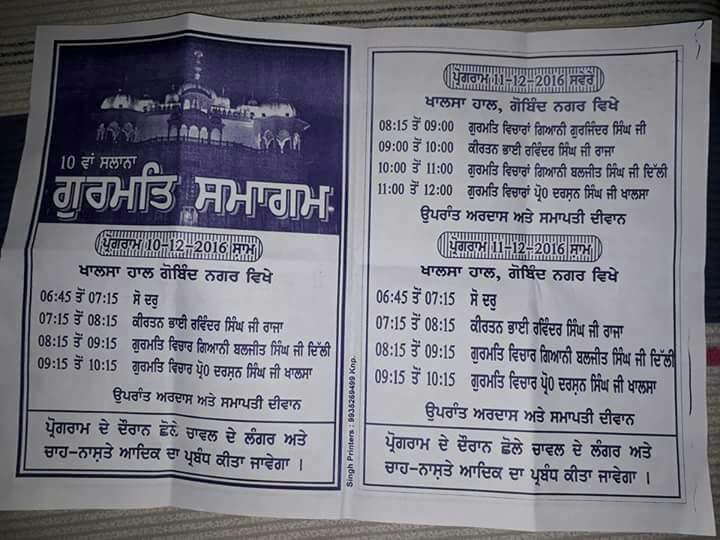 10 ਵਾਂ ਸਲਾਨਾ
ਗੁਰਮਤਿ ਸਮਾਗਮ
ਪ੍ਰੋਗਰਾਮ 10-12-2016 ਸ਼ਾਮ
ਖਾਲਸਾ ਹਾਲ ਗੋਬਿੰਦ ਨਗਰ ਵਿਖੇ
06:45 ਤੋਂ 07:15 ਸੋ ਦਰੁ
07:15 ਤੋਂ 08:15 ਕੀਰਤਨ ਭਾਈ ਰਵਿੰਦਰ ਸਿੰਘ ਜੀ ਰਾਜਾ
08:15 ਤੋਂ 09:15 ਗੁਰਮਤਿ ਵਿਚਾਰ ਗਿਆਨੀ ਬਲਜੀਤ ਸਿੰਘ ਜੀ ਦਿੱਲੀ
09:15 ਤੋਂ 10:15 ਗੁਰਮਤਿ ਵਿਚਾਰ ਪ੍ਰੋ0 ਦਰਸ਼ਨ ਸਿੰਘ ਜੀ ਖਾਲਸਾ
ਉਪਰਾਂਤ ਅਰਦਾਸ ਅਤੇ ਸਮਾਪਤੀ ਦੀਵਾਨ
ਪ੍ਰੋਗਰਾਮ ਦੇ ਦੌਰਾਨ ਛੋਲੇ ਚਾਵਲ ਦੇ ਲੰਗਰ ਅਤੇ
ਚਾਹ-ਨਾਸ਼ਤੇ ਆਦਿਕ ਦਾ ਪ੍ਰਬੰਧ ਕੀਤਾ ਜਾਵੇਗਾ ।
Singh Printers : 9935269499 Knp.
ਪ੍ਰੋਗਰਾਮ 11-12-2016 ਸਵੇਰੇ
ਖਾਲਸਾ ਹਾਲ, ਗੋਬਿੰਦ ਨਗਰ ਵਿਖੇ
08:15 ਤੋਂ 09:00 ਗੁਰਮਤਿ ਵਿਚਾਰਾਂ ਗਿਆਨੀ ਗੁਰਜਿੰਦਰ ਸਿੰਘ ਜੀ
09:00 ਤੋਂ 10:00 ਕੀਰਤਨ ਭਾਈ ਰਵਿੰਦਰ ਸਿੰਘ ਜੀ ਰਾਜਾ
10:00 ਤੋਂ 11:00 ਗੁਰਮਤਿ ਵਿਚਾਰਾਂ ਗਿਆਨੀ ਬਲਜੀਤ ਸਿੰਘ ਜੀ ਦਿੱਲੀ
11:00 ਤੋਂ 12:00 ਗੁਰਮਤਿ ਵਿਚਾਰਾਂ ਪ੍ਰੋ0 ਦਰਸ਼ਨ ਸਿੰਘ ਜੀ ਖਾਲਸਾ
ਉਪਰਾਂਤ ਅਰਦਾਸ ਅਤੇ ਸਮਾਪਤੀ ਦੀਵਾਨ
ਪ੍ਰੋਗਰਾਮ 11-12-2016 ਸ਼ਾਮ
ਖਾਲਸਾ ਹਾਲ, ਗੋਬਿੰਦ ਨਗਰ ਵਿਖੇ
06:45 ਤੋਂ 07:15 ਸੋ ਦਰੁ
07:15 ਤੋਂ 08:15 ਕੀਰਤਨ ਭਾਈ ਰਵਿੰਦਰ ਸਿੰਘ ਜੀ ਰਾਜਾ
08:15 ਤੋਂ 09:15 ਗੁਰਮਤਿ ਵਿਚਾਰ ਗਿਆਨੀ ਬਲਜੀਤ ਸਿੰਘ ਜੀ ਦਿੱਲੀ
09:15 ਤੋਂ 10:15 ਗੁਰਮਤਿ ਵਿਚਾਰ ਪ੍ਰੋ0 ਦਰਸ਼ਨ ਸਿੰਘ ਜੀ ਖਾਲਸਾ
ਉਪਰਾਂਤ ਅਰਦਾਸ ਅਤੇ ਸਮਾਪਤੀ ਦੀਵਾਨ
ਪ੍ਰੋਗਰਾਮ ਦੇ ਦੌਰਾਨ ਛੋਲੇ ਚਾਵਲ ਦੇ ਲੰਗਰ ਅਤੇ
ਚਾਹ-ਨਾਸ਼ਤੇ ਆਦਿਕ ਦਾ ਪ੍ਰਬੰਧ ਕੀਤਾ ਜਾਵੇਗਾ ।